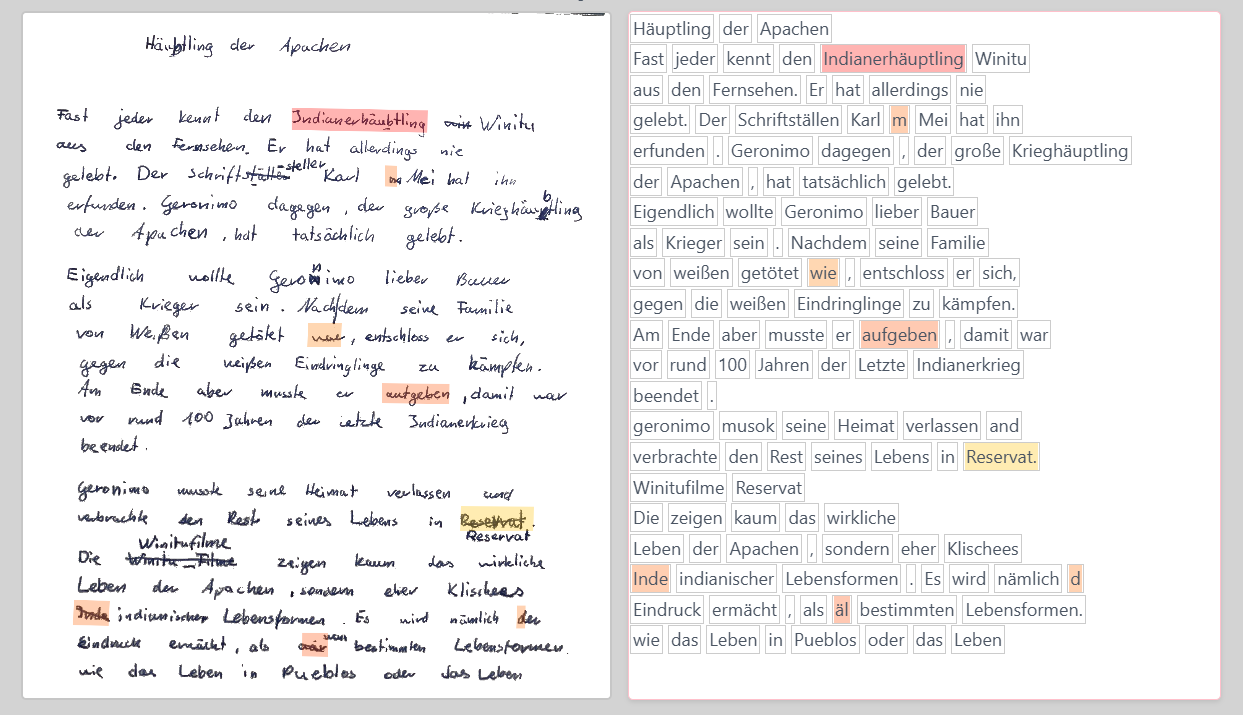 Häubtling der Apachen
Fast jeder kennt den Indianerhäubtling Winitu
aus den Fernsehen. Er hat allerdings nie
steller
gelebt. Der Schriftställer Karl Mei hat ihn
b
erfunden. Geronimo dagegen, der große Krieghäubtling
der Apachen, hat tatsächlich gelebt.
n
Eigendlich wollte Geronimo lieber Bauer
als Krieger sein. Nachdem seine Familie
von Weißen getötet war, entschloss er sich,
gegen die weißen Eindringlinge zu kämpfen.
Am Ende aber musste er aufgeben, damit war
vor rund 100 Jahren der letzte Indianerkrieg
beendet.
Geronimo musste seine Heimat verlassen und
verbrachte den Rest seines Lebens in Reservat.
Winitufilme Reservat
Die Winitu-Filme zeigen kaum das wirkliche
Leben der Apachen, sondern eher Klischees
Inde indianischer Lebensformen. Es wird nämlich der
Eindruck erwächt, als wan bestimmten Lebensformen.
wie das Leben in Pueblos oder das Leben
Häuptling der Apachen
Fast jeder kennt den Indianerhäuptling Winitu
aus den Fernsehen. Er hat allerdings nie
gelebt. Der Schriftställen Karl m Mei hat ihn
erfunden . Geronimo dagegen , der große Krieghäuptling
der Apachen , hat tatsächlich gelebt.
Eigendlich wollte Geronimo lieber Bauer
als Krieger sein . Nachdem seine Familie
von weißen getötet wie , entschloss er sich,
gegen die weißen Eindringlinge zu kämpfen.
Am Ende aber musste er aufgeben , damit war
vor rund 100 Jahren der Letzte Indianerkrieg
beendet .
geronimo musok seine Heimat verlassen and
verbrachte den Rest seines Lebens in Reservat.
Winitufilme Reservat
Die zeigen kaum das wirkliche
Leben der Apachen , sondern eher Klischees
Inde indianischer Lebensformen . Es wird nämlich d
Eindruck ermächt , als äl bestimmten Lebensformen.
wie das Leben in Pueblos oder das Leben